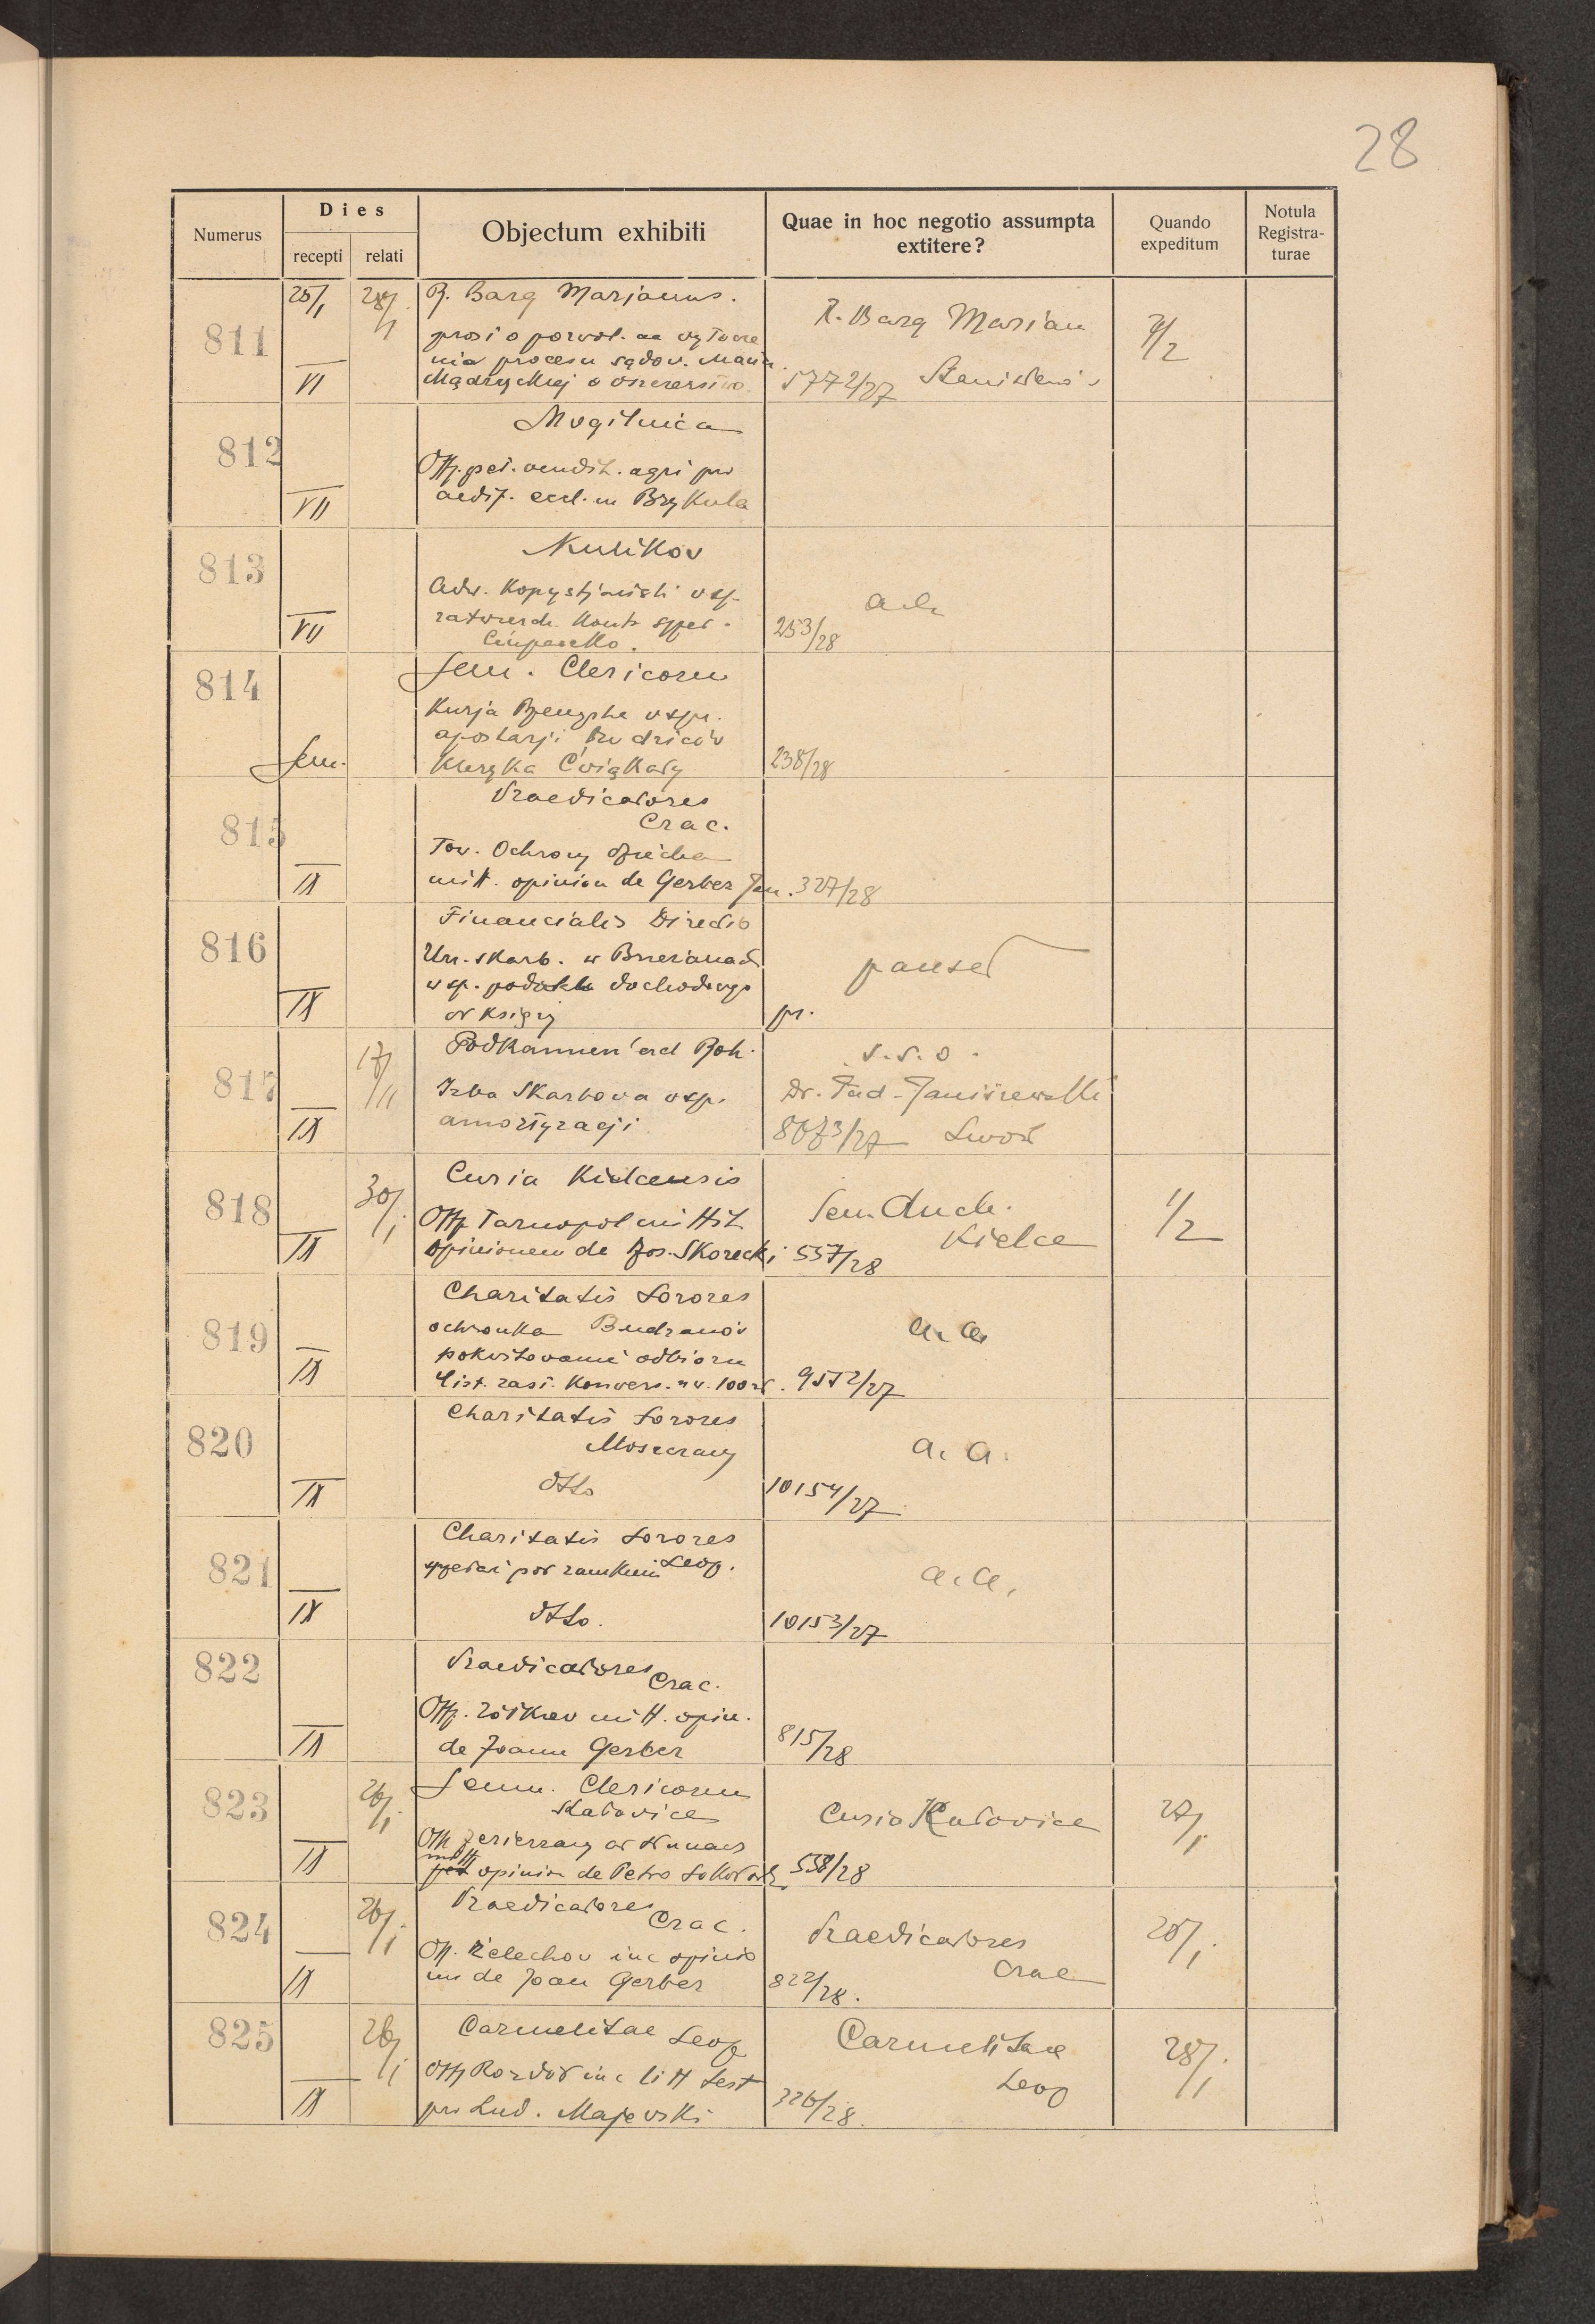 28
Numerus
Dies
recepti
relati
Objectum exhibiti
Quae in hoc negotio assumpta
extitere?
Quando
expeditum
Notula
Registra-
turae
811
25/1
28/1
R. Barg Marjanus.
prosi o pozwol. na wytocze
nia procesu sądow. Marii
Mądrzyckiej o
VI
R. Barg Marian
5772/27
7/2
812
Mogilnica
Off. pet. vendit. agri pro
aedif. eccl. in Brykula
VII
813
Kulikov
Adw. Kopystjanski w sp.
zatwierdz. kontr
VII
a.a.
253/28
814
Sem. Clericorum
Kurja w spr.
apostazji rodziców
kleryka Ćwiąkały
Sem.
238/28
815
Praedicatores
Crac.
Tow. Ochrony
mitt. opinion de Gerber Jan.
IX
327/28
816
Financialis Directio
Urz. skarb. w Brzeżanach
w sp. podatku dochodowego
od księży
IX
pauset
pr.
817
17/II
Podkamień ad Roh.
Izba Skarbowa w sp.
amortyzacji
IX
s.s.o.
Dr. Tad. Janiszewski
8073/27 Lwów
818
30/1
Curia Kielcensis
Off. Tarnopol mittit
opinionem de Jos. Skorecki
IX
Sem. Duch.
Kielce
557/28
1/2
819
Charitatis Sorores
ochronka Budzanów
pokwitowanie odbioru
list. zast. konwers. n w. 100 zł.
IX
a. a.
9572/27
820
Charitatis Sorores
Mosczany
dtto
IX
a. a.
10154/27
821
Charitatis Sorores
Leop.
dtto.
IX
a. a.
10153/27
822
Praedicatores
Crac.
Off. Żółkiew mitt. opin.
de Joann Gerber
IX
815/28
823
26/1
Semin. Clericorum
Katovice
Off Jezierzany
mitt
opinion de Petro
IX
Curia Katovice
558/28
27/1
824
26/1
Praedicatores
Crac.
Off. Żelechov inc opinio
nm de Joan Gerber
IX
Praedicatores
Crac
822/28.
28/1
825
26/1
Carmelitae Leop
Off Rozdół inc litt test
pro Lud. Majewski
IX
Carmelitae
Leop
326/28.
28/1